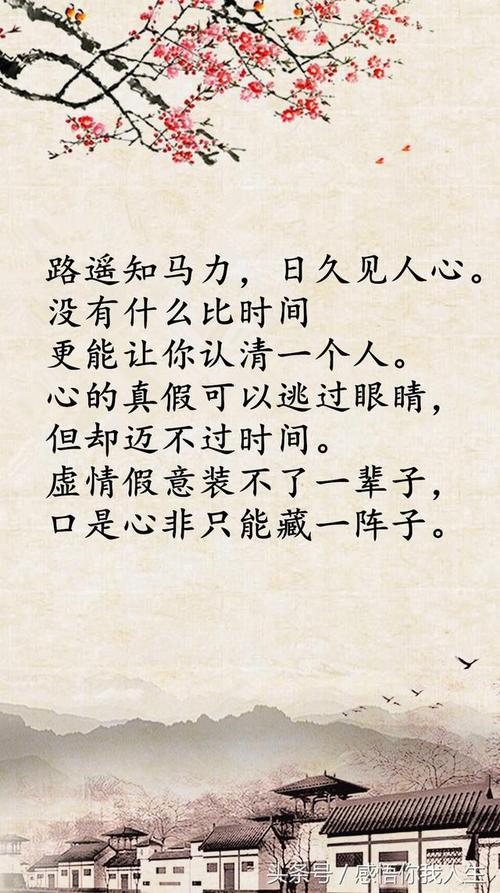 路遥知马力，日久见人心。
没有什么比时间
更能让你认清一个人。
心的真假可以逃过眼睛，
但却迈不过时间。
虚情假意装不了一辈子，
口是心非只能藏一阵子。
头条号 / 感悟你我人生